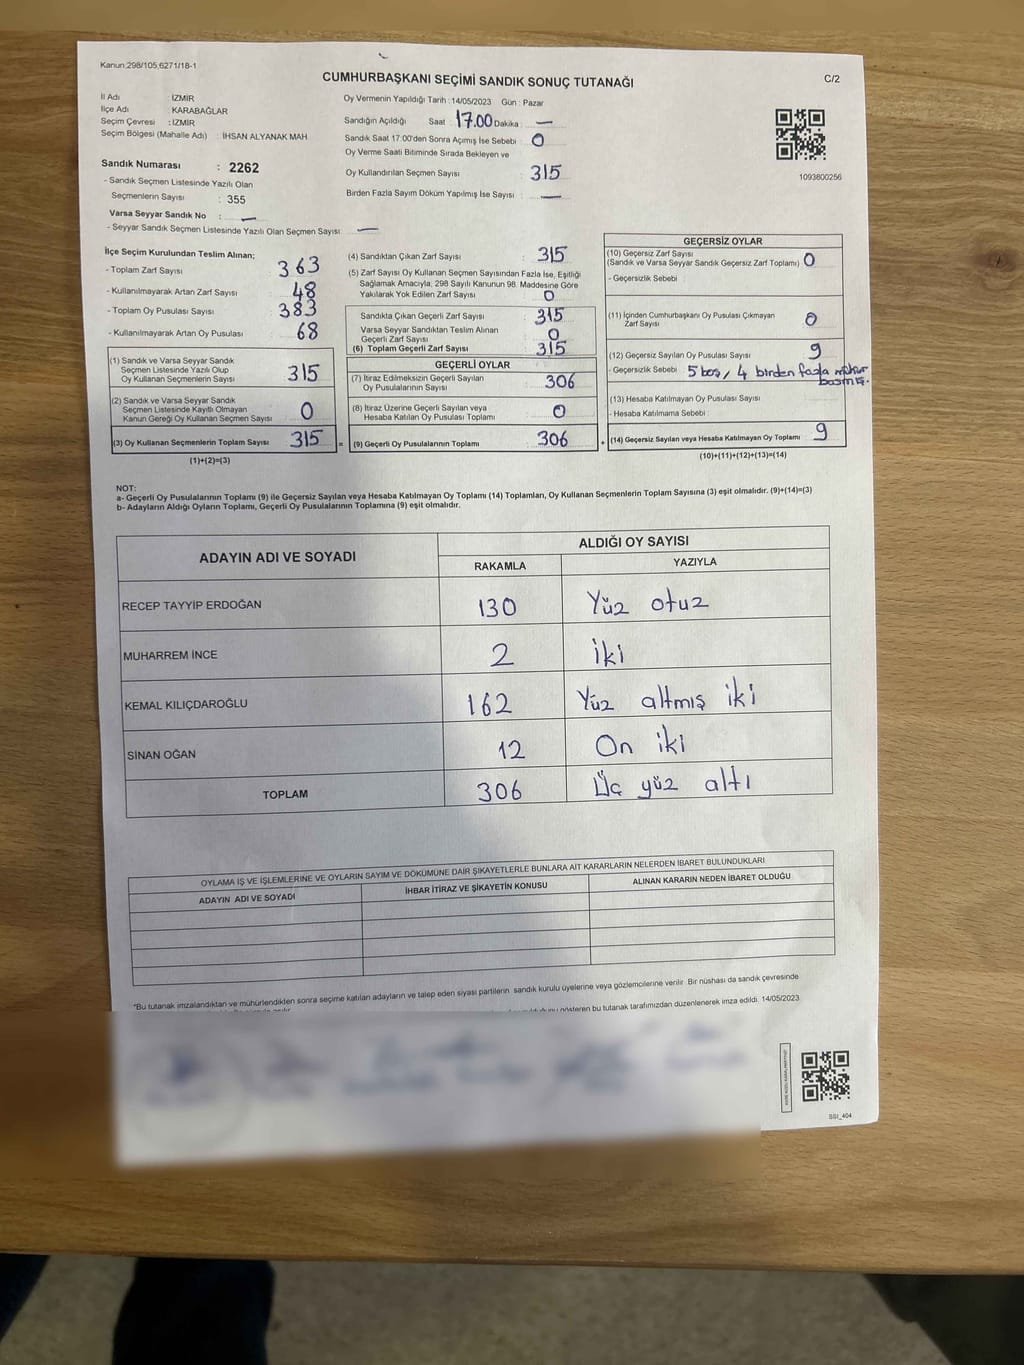 Kanun:298/105,6271/18-1
CUMHURBAŞKANI SEÇİMİ SANDIK SONUÇ TUTANAĞI
C/2
İl Adı : İZMİR
İlçe Adı : KARABAĞLAR
Seçim Çevresi : İZMİR
Seçim Bölgesi (Mahalle Adı) : İHSAN ALYANAK MAH.
Sandık Numarası : 2262
- Sandık Seçmen Listesinde Yazılı Olan
Seçmenlerin Sayısı : 355
Varsa Seyyar Sandık No : —
- Seyyar Sandık Seçmen Listesinde Yazılı Olan Seçmen Sayısı: —
Oy Vermenin Yapıldığı Tarih : 14/05/2023 Gün : Pazar
Sandığın Açıldığı Saat : 17.00 Dakika : —
Sandık Saat 17:00'den Sonra Açımış İse Sebebi : 0
Oy Verme Saati Bitiminde Sırada Bekleyen ve
Oy Kullandırılan Seçmen Sayısı : 315
Birden Fazla Sayım Döküm Yapılmış İse Sayısı : —
1093800256
İlçe Seçim Kurulundan Teslim Alınan;
- Toplam Zarf Sayısı 363
- Kullanılmayarak Artan Zarf Sayısı 48
- Toplam Oy Pusulası Sayısı 383
- Kullanılmayarak Artan Oy Pusulası 68
(1) Sandık ve Varsa Seyyar Sandık
Seçmen Listesinde Yazılı Olup
Oy Kullanan Seçmenlerin Sayısı 315
(2) Sandık ve Varsa Seyyar Sandık
Seçmen Listesinde Kayıtlı Olmayan
Kanun Gereği Oy Kullanan Seçmen Sayısı 0
(3) Oy Kullanan Seçmenlerin Toplam Sayısı 315 =
(1)+(2)=(3)
(4) Sandıktan Çıkan Zarf Sayısı : 315
(5) Zarf Sayısı Oy Kullanan Seçmen Sayısından Fazla İse, Eşitliği
Sağlamak Amacıyla, 298 Sayılı Kanunun 98. Maddesine Göre
Yakılarak Yok Edilen Zarf Sayısı 0
Sandıkta Çıkan Geçerli Zarf Sayısı 315
Varsa Seyyar Sandıktan Teslim Alınan
Geçerli Zarf Sayısı 0
(6) Toplam Geçerli Zarf Sayısı 315
GEÇERLİ OYLAR
(7) İtiraz Edilmeksizin Geçerli Sayılan
Oy Pusulalarının Sayısı 306
(8) İtiraz Üzerine Geçerli Sayılan veya
Hesaba Katılan Oy Pusulası Toplamı 0
(9) Geçerli Oy Pusulalarının Toplamı 306 +
GEÇERSİZ OYLAR
(10) Geçersiz Zarf Sayısı
(Sandık ve Varsa Seyyar Sandık Geçersiz Zarf Toplamı) 0
- Geçersizlik Sebebi
(11) İçinden Cumhurbaşkanı Oy Pusulası Çıkmayan
Zarf Sayısı 0
(12) Geçersiz Sayılan Oy Pusulası Sayısı 9
- Geçersizlik Sebebi 5 boş, 4 birden fazla mühür
basmış.
(13) Hesaba Katılmayan Oy Pusulası Sayısı
- Hesaba Katılmama Sebebi
(14) Geçersiz Sayılan veya Hesaba Katılmayan Oy Toplamı 9
(10)+(11)+(12)+(13)=(14)
NOT:
a- Geçerli Oy Pusulalarının Toplamı (9) ile Geçersiz Sayılan veya Hesaba Katılmayan Oy Toplamı (14) Toplamları, Oy Kullanan Seçmenlerin Toplam Sayısına (3) eşit olmalıdır. (9)+(14)=(3)
b- Adayların Aldığı Oyların Toplamı, Geçerli Oy Pusulalarının Toplamına (9) eşit olmalıdır.
ADAYIN ADI VE SOYADI
ALDIĞI OY SAYISI
RAKAMLA YAZIYLA
RECEP TAYYİP ERDOĞAN 130 Yüz otuz
MUHARREM İNCE 2 İki
KEMAL KILIÇDAROĞLU 162 Yüz altmış iki
SİNAN OĞAN 12 On iki
TOPLAM 306 Üç yüz altı
OYLAMA İŞ VE İŞLEMLERİNE VE OYLARIN SAYIM VE DÖKÜMÜNE DAİR ŞİKAYETLERLE BUNLARA AİT KARARLARIN NELERDEN İBARET BULUNDUKLARI
ADAYIN ADI VE SOYADI İHBAR İTİRAZ VE ŞİKAYETİN KONUSU ALINAN KARARIN NEDEN İBARET OLDUĞU
*Bu tutanak imzalandıktan ve mühürlendikten sonra seçime katılan adayların ve talep eden siyasi partilerin sandık kurulu üyelerine veya gözlemcilerine verilir. Bir nüshası da sandık çevresinde
gösteren bu tutanak tarafımızdan düzenlenerek imza edildi. 14/05/2023
SSI_404